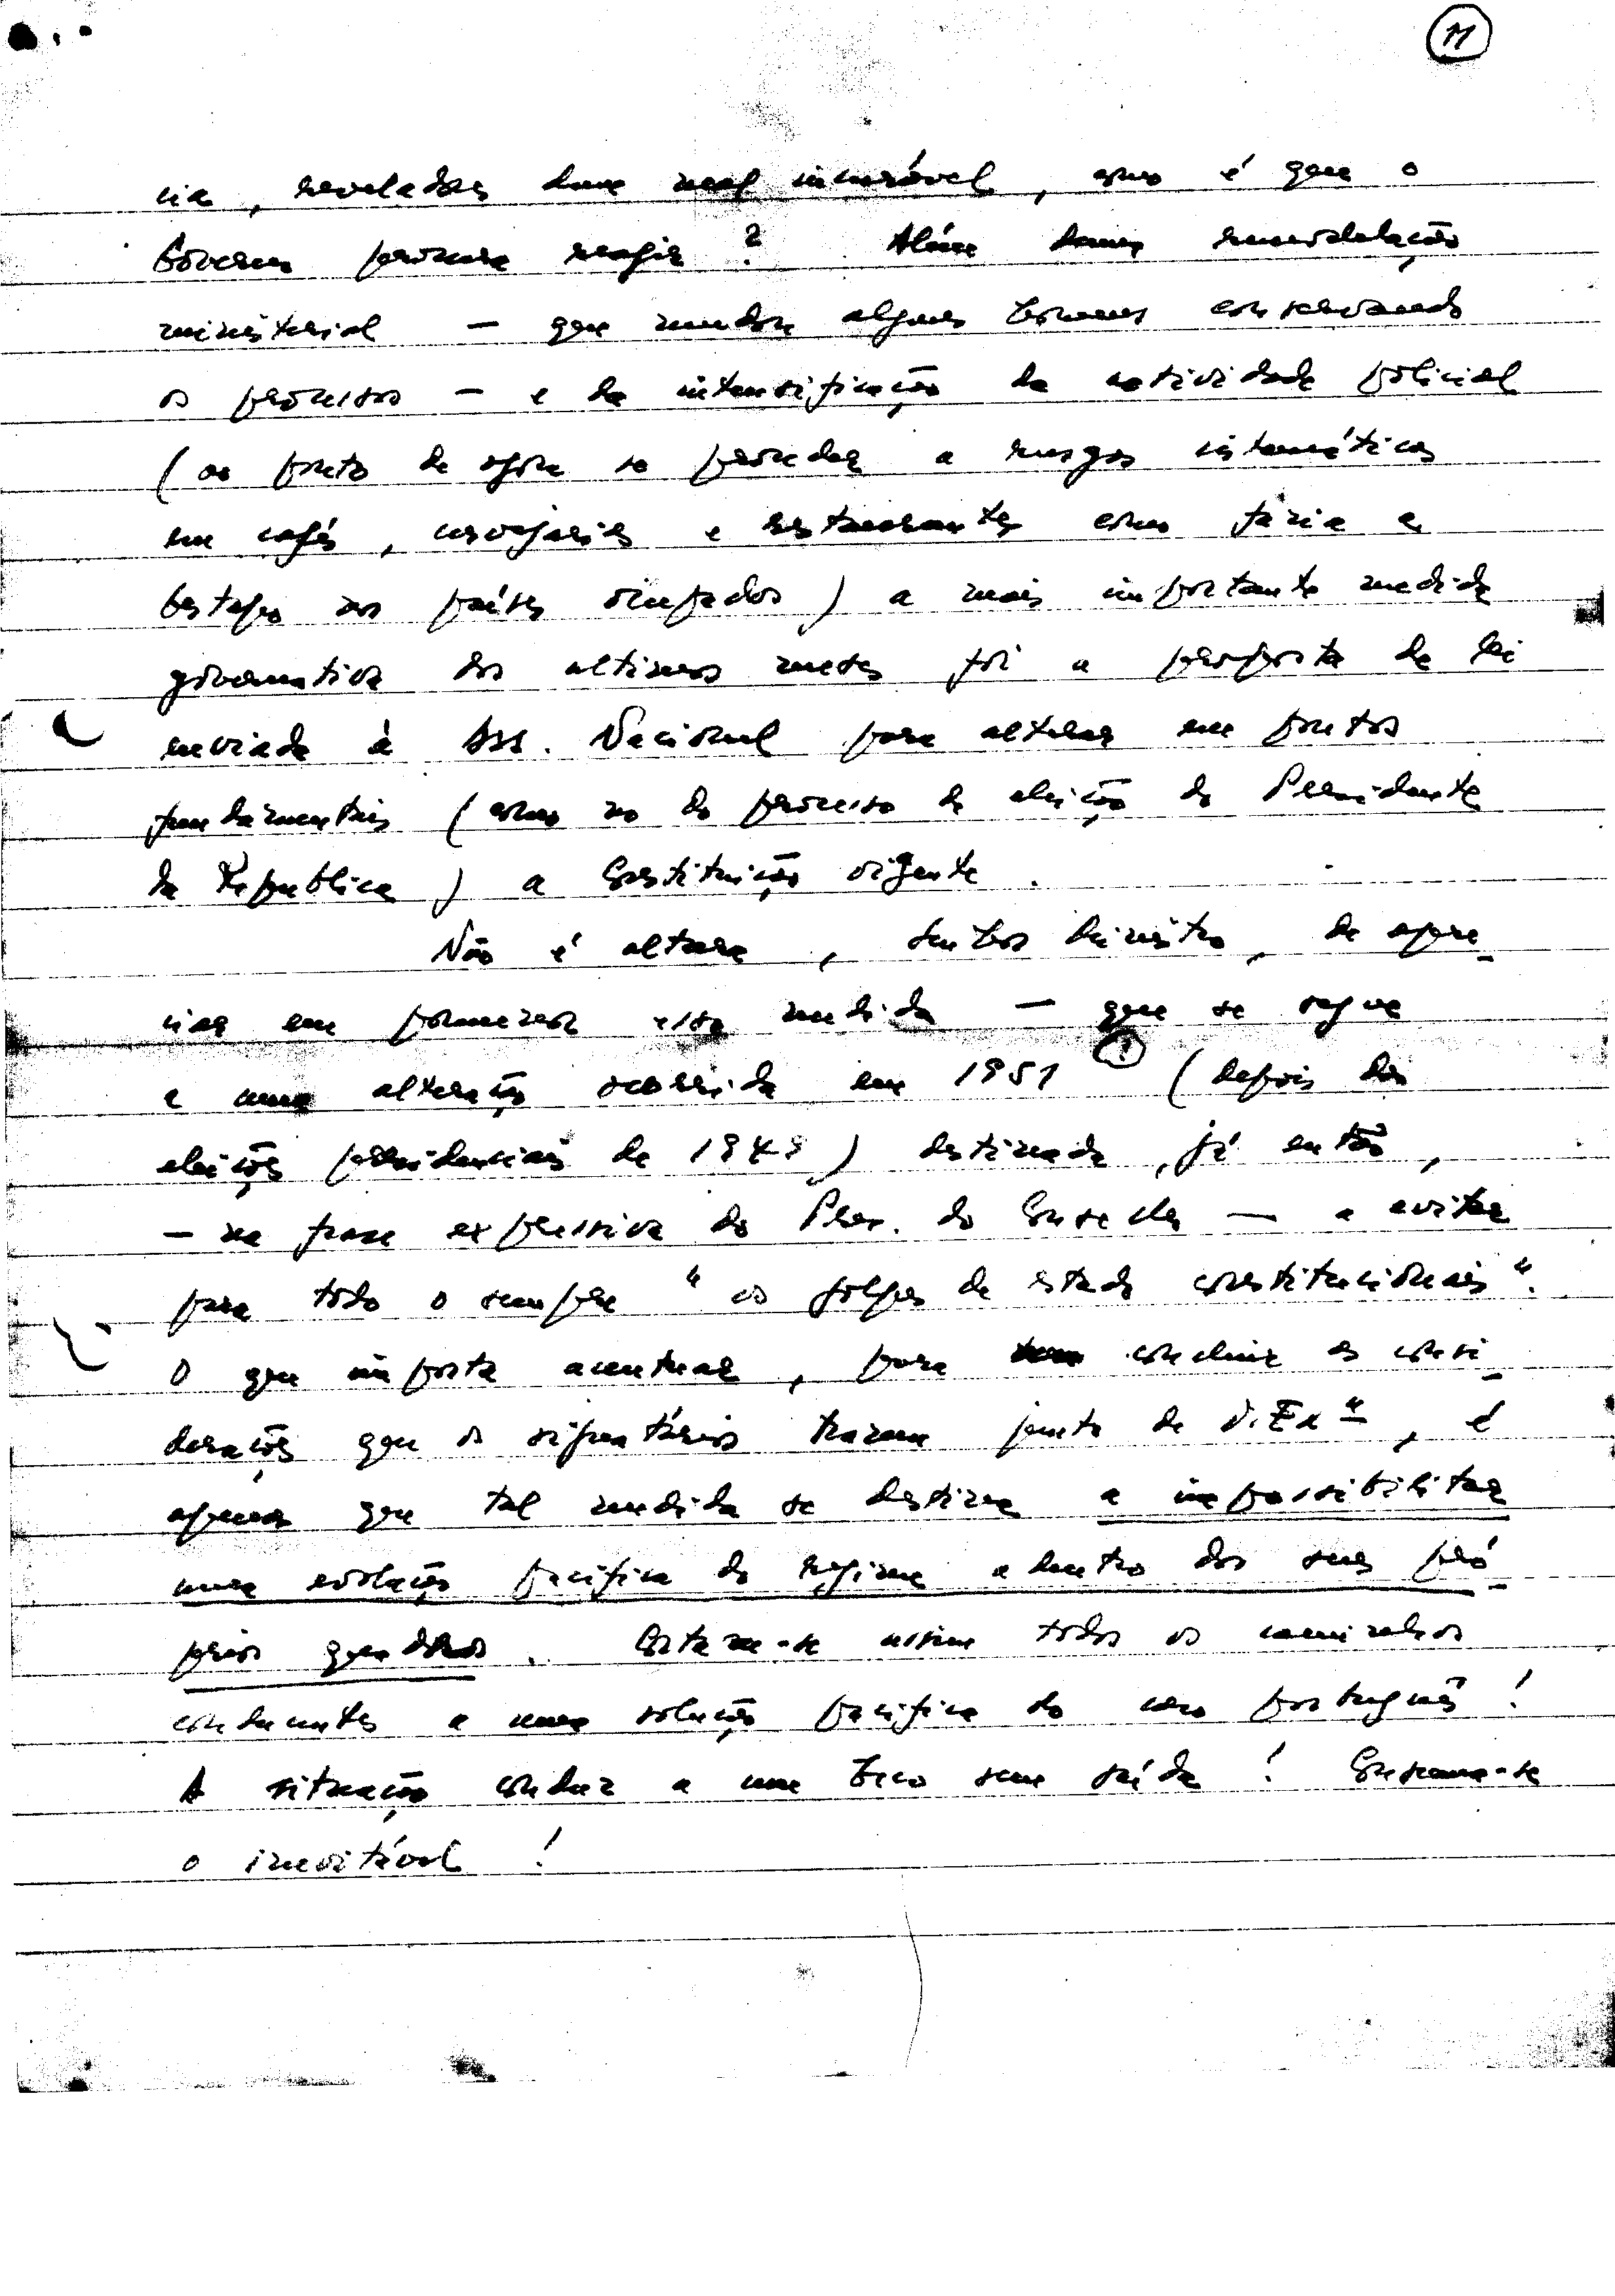 11
cia, reveladores dum mal incurável, como é que o
Govêrno procura reagir? Além duma remodelação
ministerial — que mudou alguns homens conservando
os processos — e da intensificação da actividade policial
(ao ponto de agora se proceder a rusgas sistemáticas
em cafés, cervejarias e restaurantes como fazia a
Gestapo nos países ocupados) a mais importante medida
governativa dos ultimos meses foi a proposta de lei
enviada à Ass. Nacional para alterar em pontos
fundamentais (como no do processo de eleição do Presidente
da Republica) a Constituição vigente.
Não é altura, Senhor Ministro, de apre-
ciar em pormenor essa medida — que se segue
a uma alteração ocorrida em 1951 (1) (depois das
eleições presidenciais de 1949) destinada, já então,
— na frase expressiva do Pres. do Conselho — a evitar
para todo o sempre "os golpes de estado constitucionais".
O que importa acentuar, para concluir as consi-
derações que os signatários trazem junto de V. Exª, é
apenas que tal medida se destina a impossibilitar
uma evolução pacífica do regime adentro dos seus pró-
prios quadros. Cortam-se assim todos os caminhos
conducentes a uma solução pacifica do caso português!
A situação conduz a um beco sem saída! Consuma-se
o inevitável!